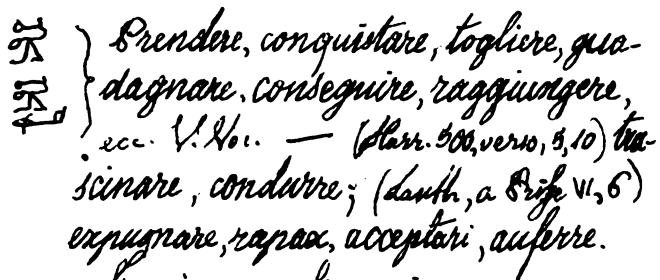 Prendere, conquistare, togliere, gua-
dagnare, conseguire, raggiungere,
ecc. V. Voc. — (Harr. 500, verso, 5, 10) tra-
scinare, condurre; (, a VI, 6)
expugnare, rapax, acceptari, auferre.